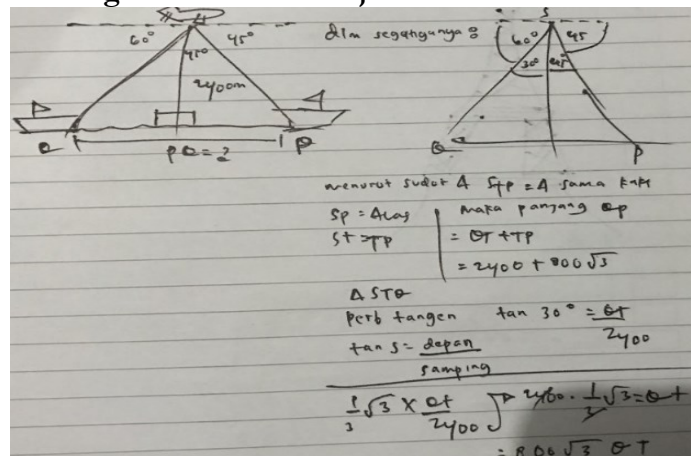 60° 45°
45°
2400m
Q P
PQ = ?
dlm segitiganya :
S
60° 45
30° 45°
Q P
menurut sudut Δ STP = Δ sama kaki
SP = Alas
ST = TP
maka panjang QP
= QT + TP
= 2400 + 800√3
Δ STQ
Perb tangen tan 30° = QT/2400
tan S = depan/samping
1/3 √3 × QT/2400
2400 · 1/3 √3 = QT
= 800√3 QT